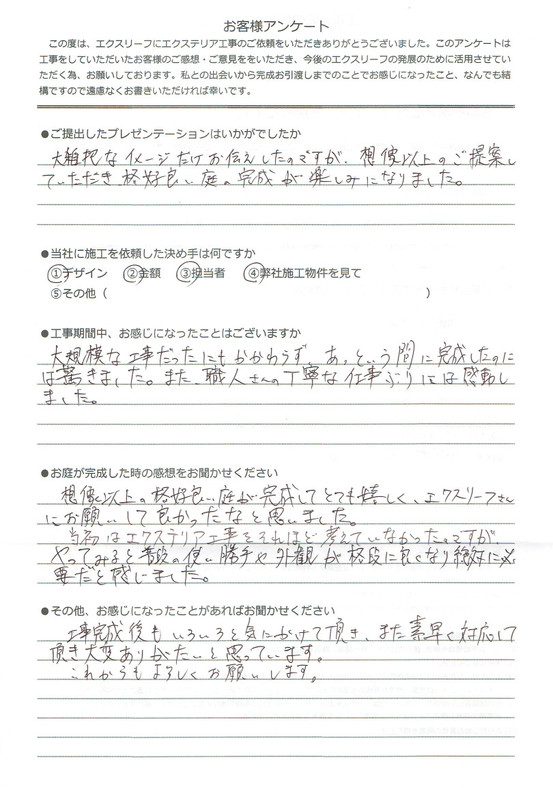 お客様アンケート
この度は、エクスリーフにエクステリア工事のご依頼をいただきありがとうございました。このアンケートは
工事をしていただいたお客様のご感想・ご意見をいただき、今後のエクスリーフの発展のために活用させてい
ただく為、お願いしております。私との出会いから完成お引渡しまでのことでお感じになったこと、なんでも結
構ですので遠慮なくお書きいただければ幸いです。
●ご提出したプレゼンテーションはいかがでしたか
大雑把なイメージだけお伝えしたのですが、想像以上のご提案し
ていただき、格好良い庭の完成が楽しみになりました。
●当社に施工を依頼した決め手は何ですか
①デザイン ②金額 ③担当者 ④弊社施工物件を見て
⑤その他（ ）
●工事期間中、お感じになったことはございますか
大規模な工事だったにもかかわらず、あっという間に完成したのに
は驚きました。また、職人さんの丁寧な仕事ぶりには感動し
ました。
●お庭が完成した時の感想をお聞かせください
想像以上の格好良い庭が完成してとても嬉しく、エクスリーフさん
にお願いして良かったなと思いました。
当初はエクステリア工事をそれほど考えていなかったのですが、
やってみると普段の使い勝手や外観が格段に良くなり絶対に必
要だと感じました。
●その他、お感じになったことがあればお聞かせください
工事完成後もいろいろと気にかけて頂き、また素早く対応して
頂き大変ありがたいと思っています。
これからもよろしくお願いします。